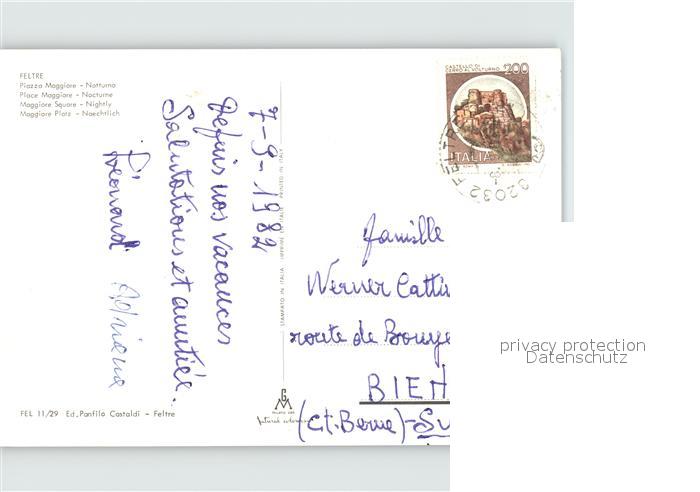 FELTRE
Piazza Maggiore - Notturno
Place Maggiore - Nocturne
Maggiore Square - Nightly
Maggiore Platz - Naechtlich
7-9-1982
Depuis nos vacances
Salutations et amitiés.
Léonardi Adriana
STAMPATO IN ITALIA - IMPRIMÉ EN ITALIE - PRINTED IN ITALY
CASTELLO DI
CERRO AL VOLTURNO 200
ITALIA
32032 FELTR
famille
Werner Catti
route de Bouje
BIEN
(Ct. Berne)-Su
privacy protection
Datenschutz
FEL 11/29 Ed. Panfilo Castaldi - Feltre